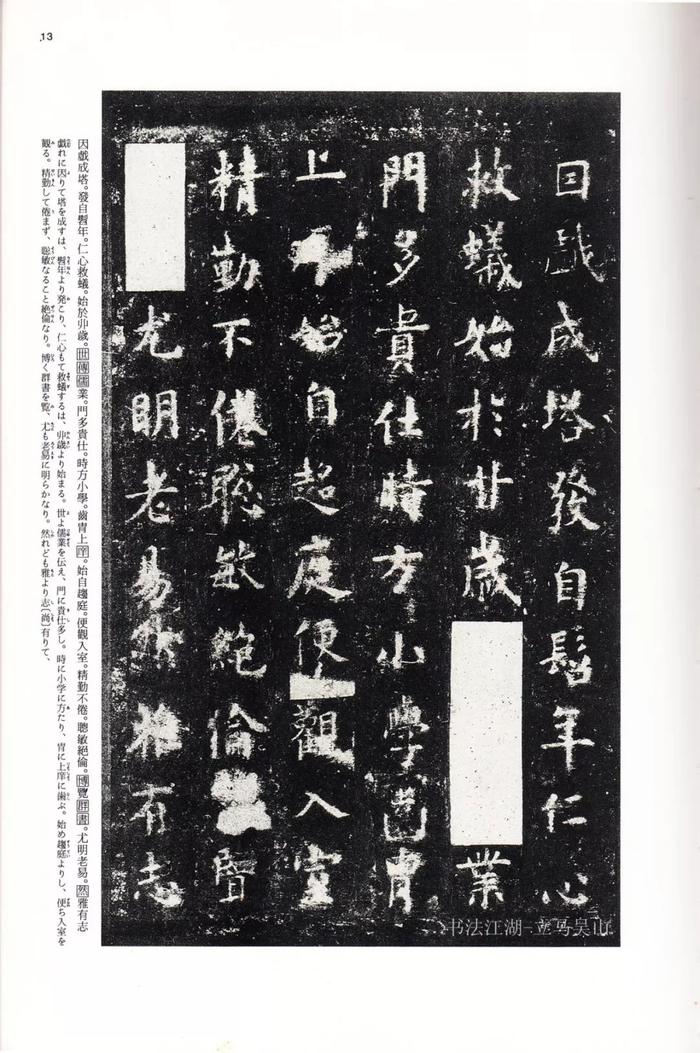 13
因戯成塔發自髫年仁心
救蟻始於廿歳
業
門多貴仕時方小學齒胄
上庠始自趍庭便觀入室
精勤不倦聡敏絶倫
尤明老易然雅有志
书法江湖-立马吴山
因戯成塔。發自髫年。仁心救蟻。始於丱歲。世傳儒業。門多貴仕。時方小學。齒胄上庠。始自趨庭。便觀入室。精勤不倦。聰敏絶倫。博覽群書。尤明老易。然雅有志
戯れに因りて塔を成すは、髫年より発こり、仁心もて救蟻するは、丱歳より始まる。世よ儒業を伝え、門に貴仕多し。時に小学に方たり、胄に上庠に歯ぶ。始め趨庭よりし、便ち入室を
観る。精勤して倦まず、聡敏なること絶倫なり。博く群書を覽、尤も老易に明らかなり。然れども雅より志〔尚〕有りて、